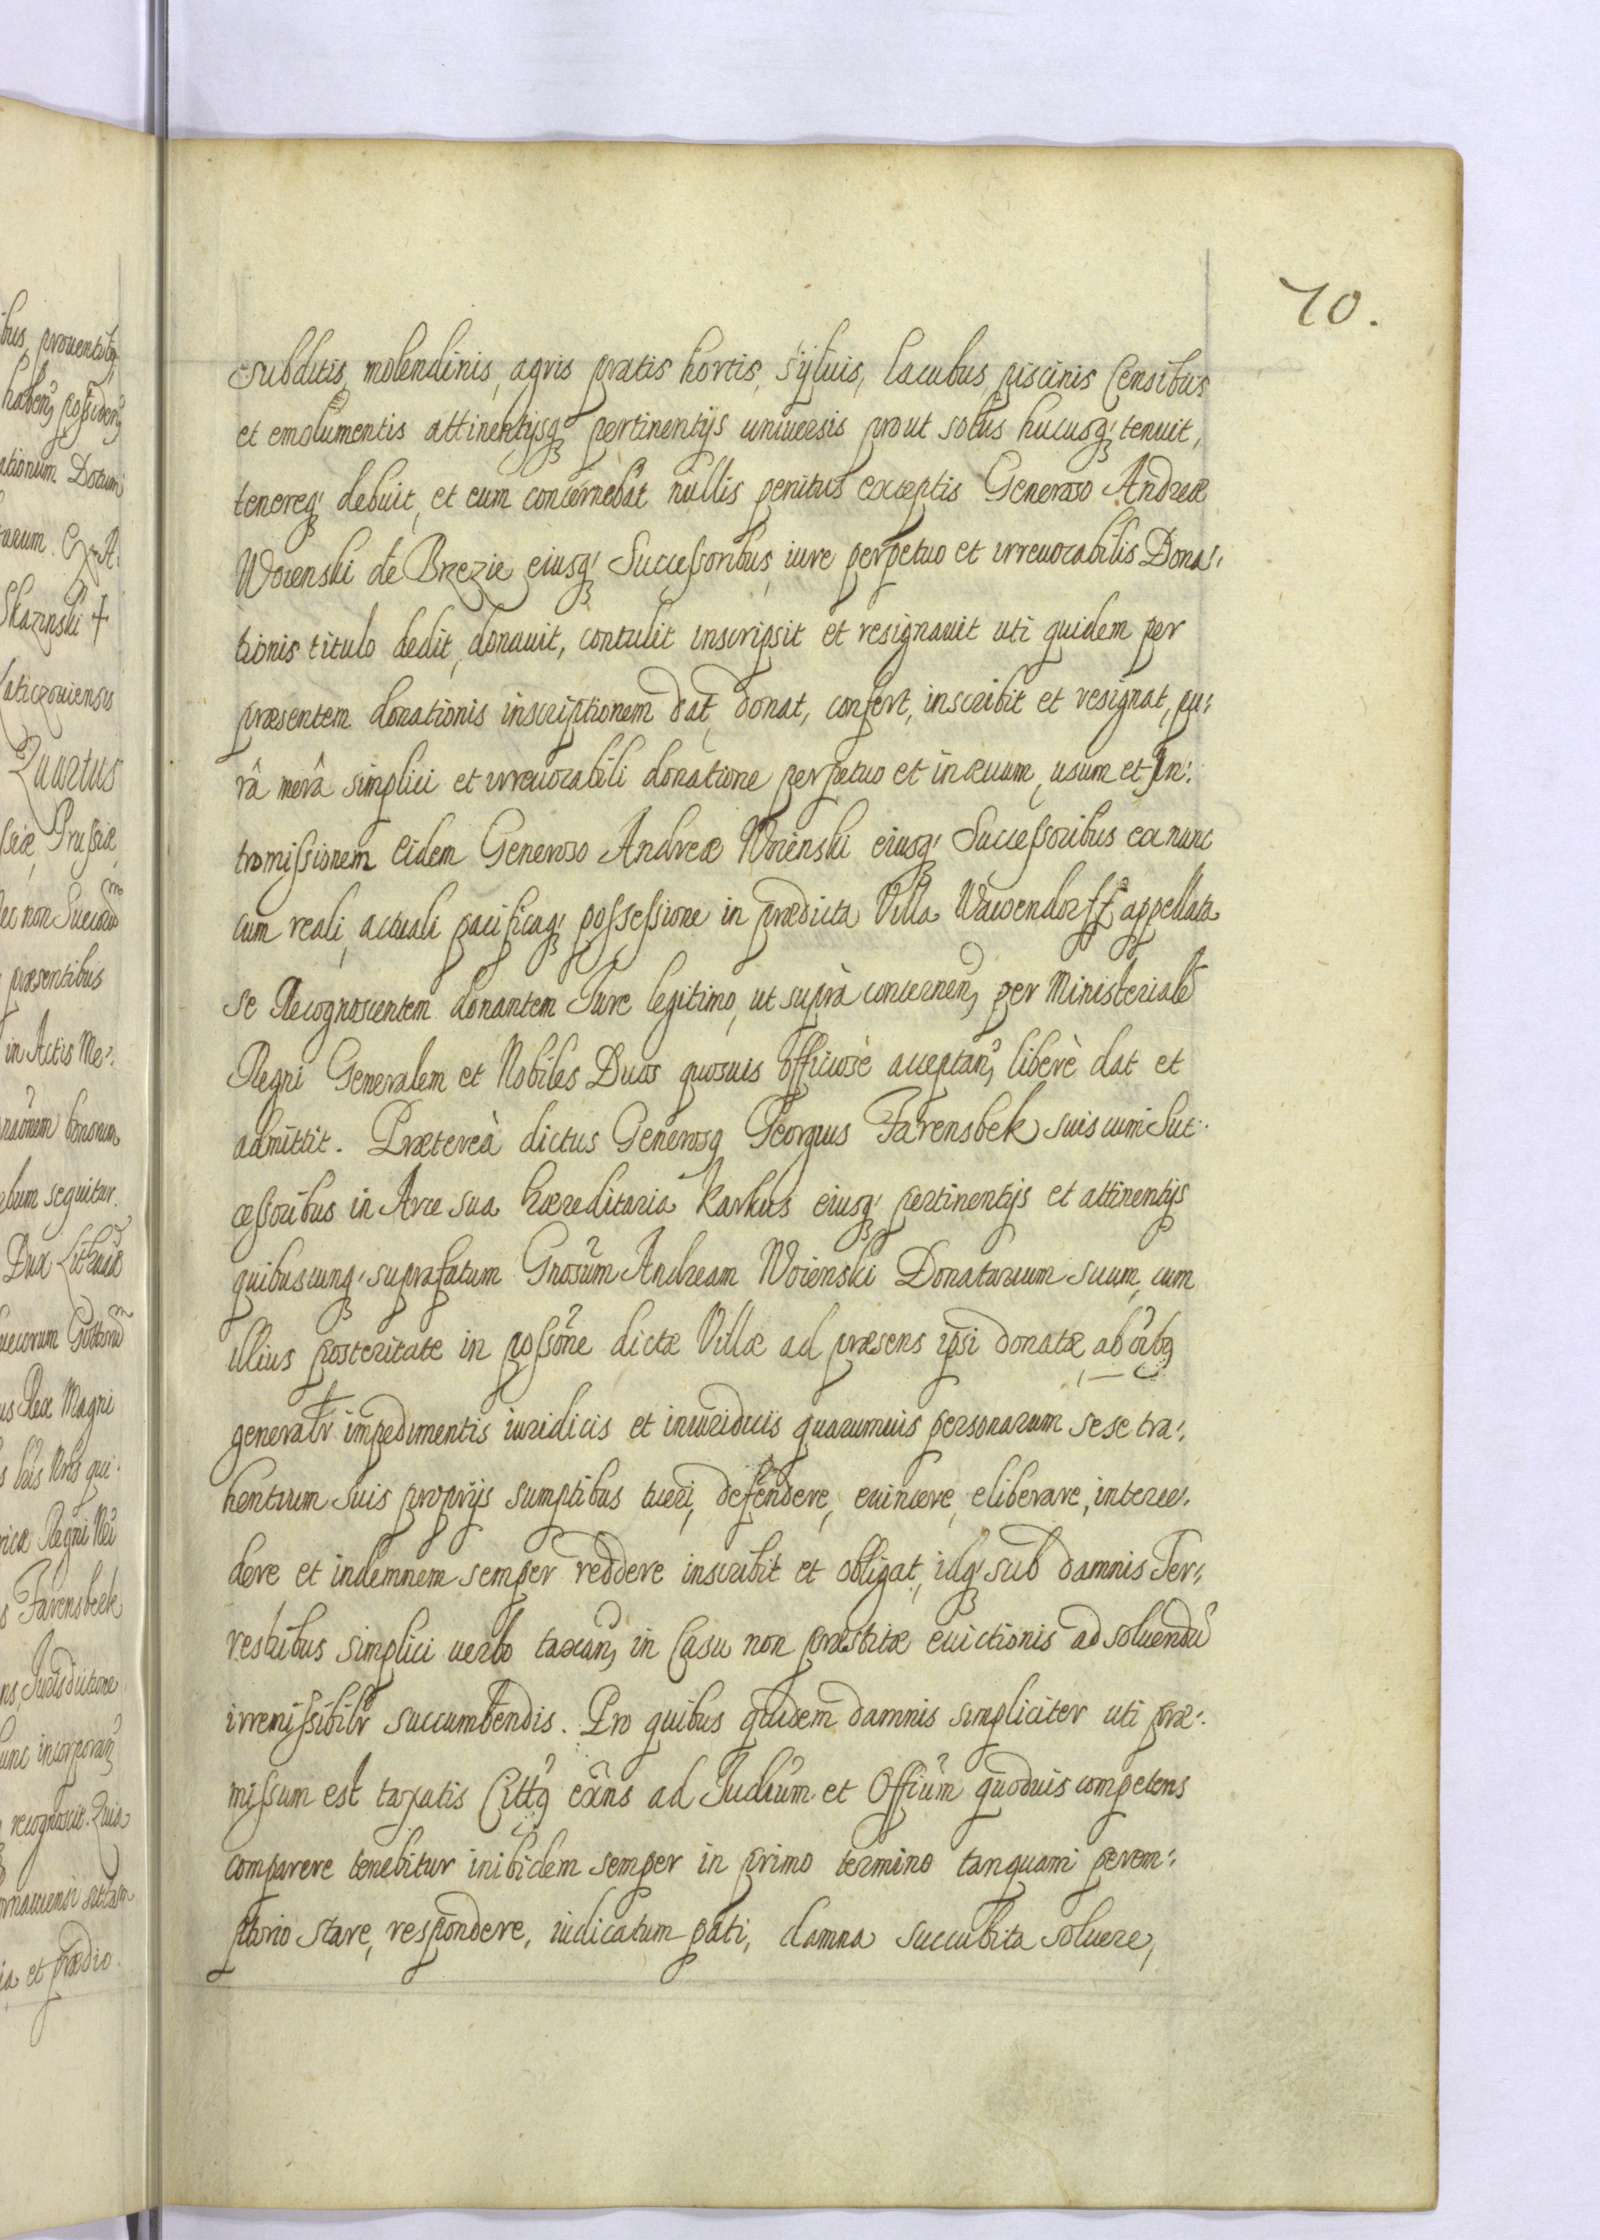 10.
subditis, molendinis, agris pratis hortis, syluis, lacubus, piscinis Censibus
et emolumentis attinentijsq́ꝫ pertinentijs uniuersis prout solus hucusq́ꝫ tenuit,
tenereq́ꝫ debuit, et eum concernebat nullis penitus exceptis Generoso Andreæ
Woienski de Brezie eiusq́ꝫ Successoribus, iure perpetuo et irreuocabilis Dona-
tionis titulo dedit, donauit, contulit inscripsit et resignauit uti quidem per
præsentem donationis inscriptionem dat, donat, confert, inscribit et resignat, pu-
râ merâ simplici et irreuocabili donatione perpetuo et in æuum, usum et In-
tromissionem eidem Generoso Andreæ Woienski eiusq́ꝫ Successoribus ex nunc
cum reali, actuali pacificaq́ꝫ possessione in prædicta Villa Wawendorff appellata
se Recognoscentem donantem Iure legitimo, ut suprà concernen̄, per Ministerialē
Regni Generalem et Nobiles Duos quosuis officiosè acceptan̄, liberè dat et
admittit. Prætereà dictus Generosꝰ Georgius Farensbek suis cum Suc-
cessoribus in Arce sua hæreditaria Karkus eiusq́ꝫ pertinentijs et attinentijs
quibuscunq́ꝫ suprafatum Gnosum̄ Andream Woienski Donatarium suum, cum
illius posteritate in possōne dictæ Villæ ad præsens ipsi donatæ ab oībꝰ
generalr̄ impedimentis iuridicis et iniuridicis quarumuis personarum sese tra-
hentium suis proprijs sumptibus tueri, defendere, euincere, eliberare, interce-
dere et indemnem semper reddere inscribit et obligat, idq́ꝫ sub damnis Ter-
restribus simplici uerbo taxan̄, in Casu non præstitæ euictionis ad soluendū
irremissibilr̄ succumbendis. Pro quibus quidem damnis simpliciter uti præ-
missum est taxatis Cittꝰ exn̄s ad Iudiūm et Offiūm quoduis competens
comparere tenebitur inibidem semper in primo termino tanquam perem-
ptorio stare, respondere, iudicatum pati, damna succubita soluere,